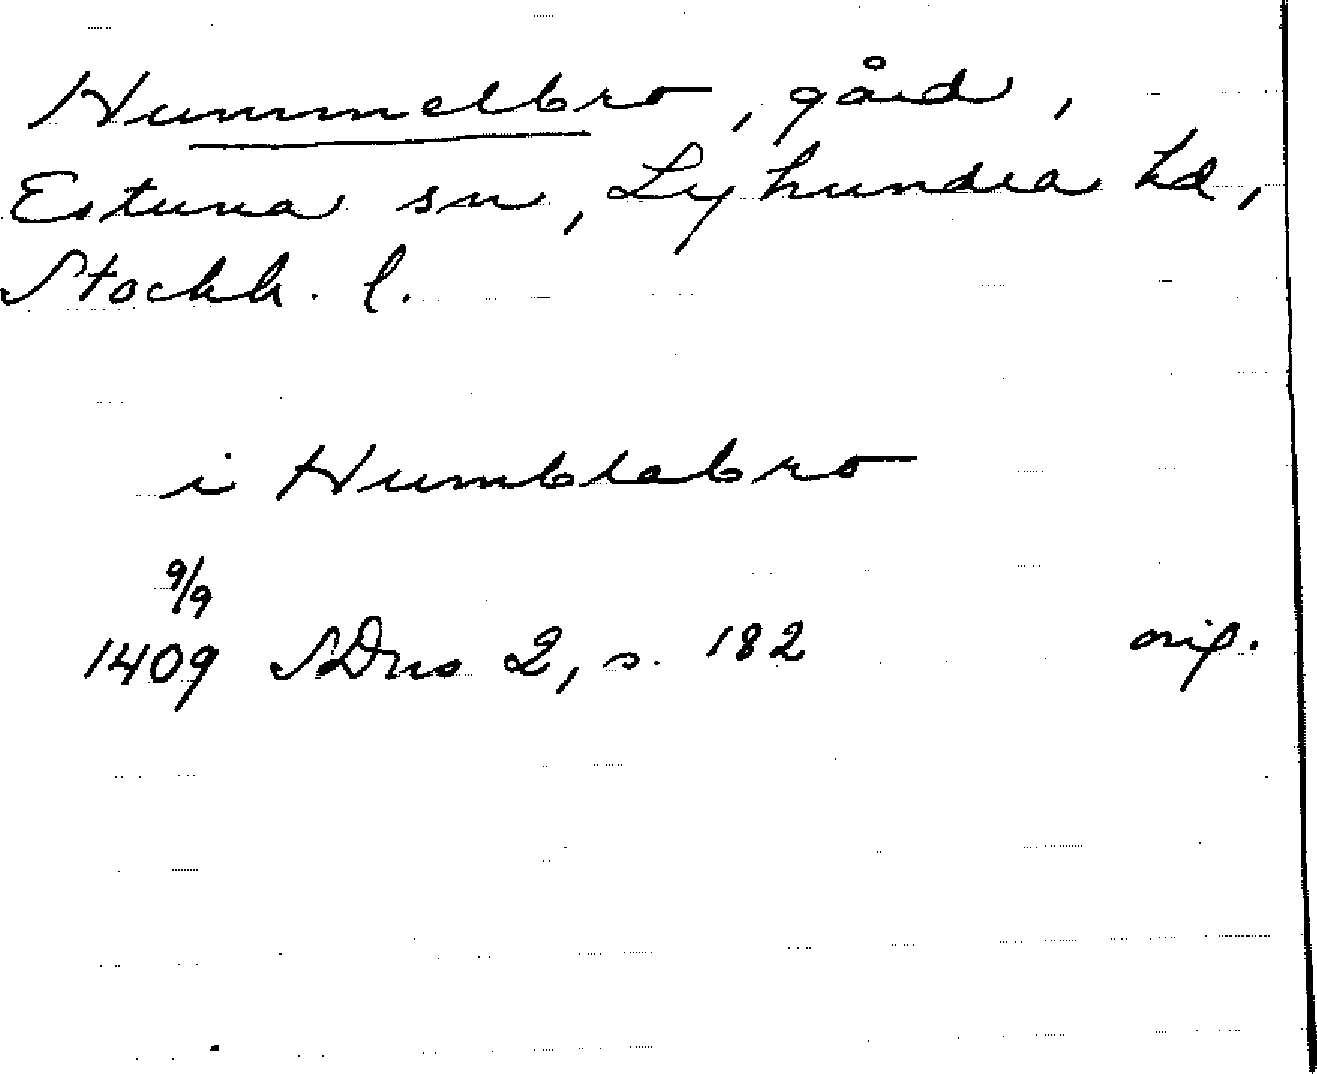 Hummelbro, gård,
Estuna sn, Lyhundra hd,
Stockh. l.
i Humblabro
9/9
1409 SDns 2, s. 182 orig.